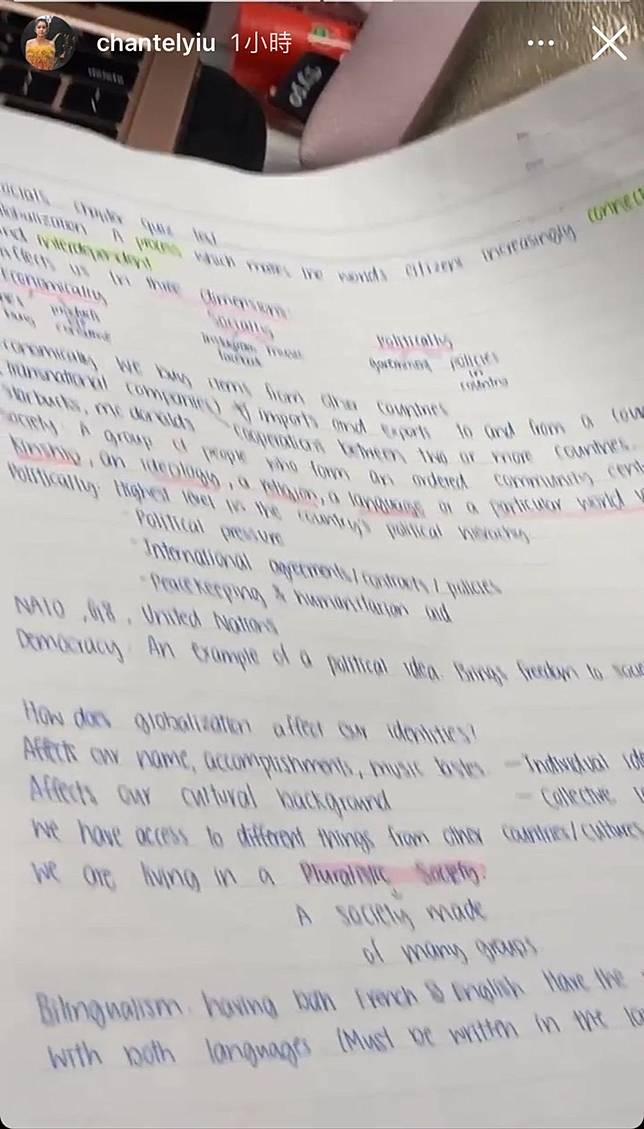 chantelyiu 1小時
chapter quiz
A process which makes the world's citizens increasingly connect
interdependent
us in three dimensions
Economically
Socially
Politically
government policies
in
country
we buy items from other countries
transnational companies imports and exports to and from a
Starbucks, mc donalds cooperations between two or more countries.
Society A group of people who form an ordered community
kinship, an ideology, a religion, a language or a particular world
Politically Highest level in the country's political hierarchy
Political pressure
International agreements/contracts/policies
Peacekeeping & humanitarian aid
NATO, G8, United Nations
Democracy An example of a political idea. Brings freedom to
How does globalization affect our identities?
Affects our name, accomplishments, music tastes - Individual
Affects our cultural background - Collective
We have access to different things from other countries/cultures
We are living in a Pluralistic Society.
A society made
of many groups
Bilingualism. having both French & English Have the
with both languages (Must be written in the